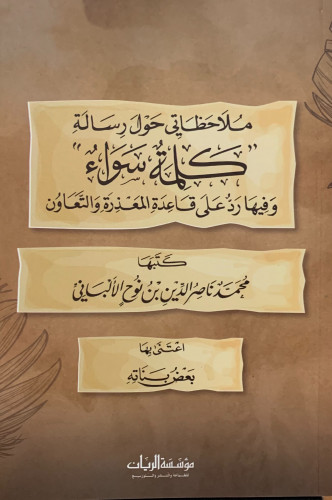 مُلَاحَظَاتِي حَوْلَ رِسَالَةِ
"كَلِمَةُ سَوَاءٍ"
وَفِيهَا رَدٌّ عَلَى قَاعِدَةِ المَعْذِرَةِ وَالتَّعَاوُن
كَتَبَهَا
مُحَمَّد نَاصِرُ الدِّينِ بْنُ نُوحٍ الأَلْبَانِيّ
اعْتَنَى بِهَا
بَعْضُ بَنَاتِهِ
مؤسسة الريان
للطباعة والنشر والتوزيع